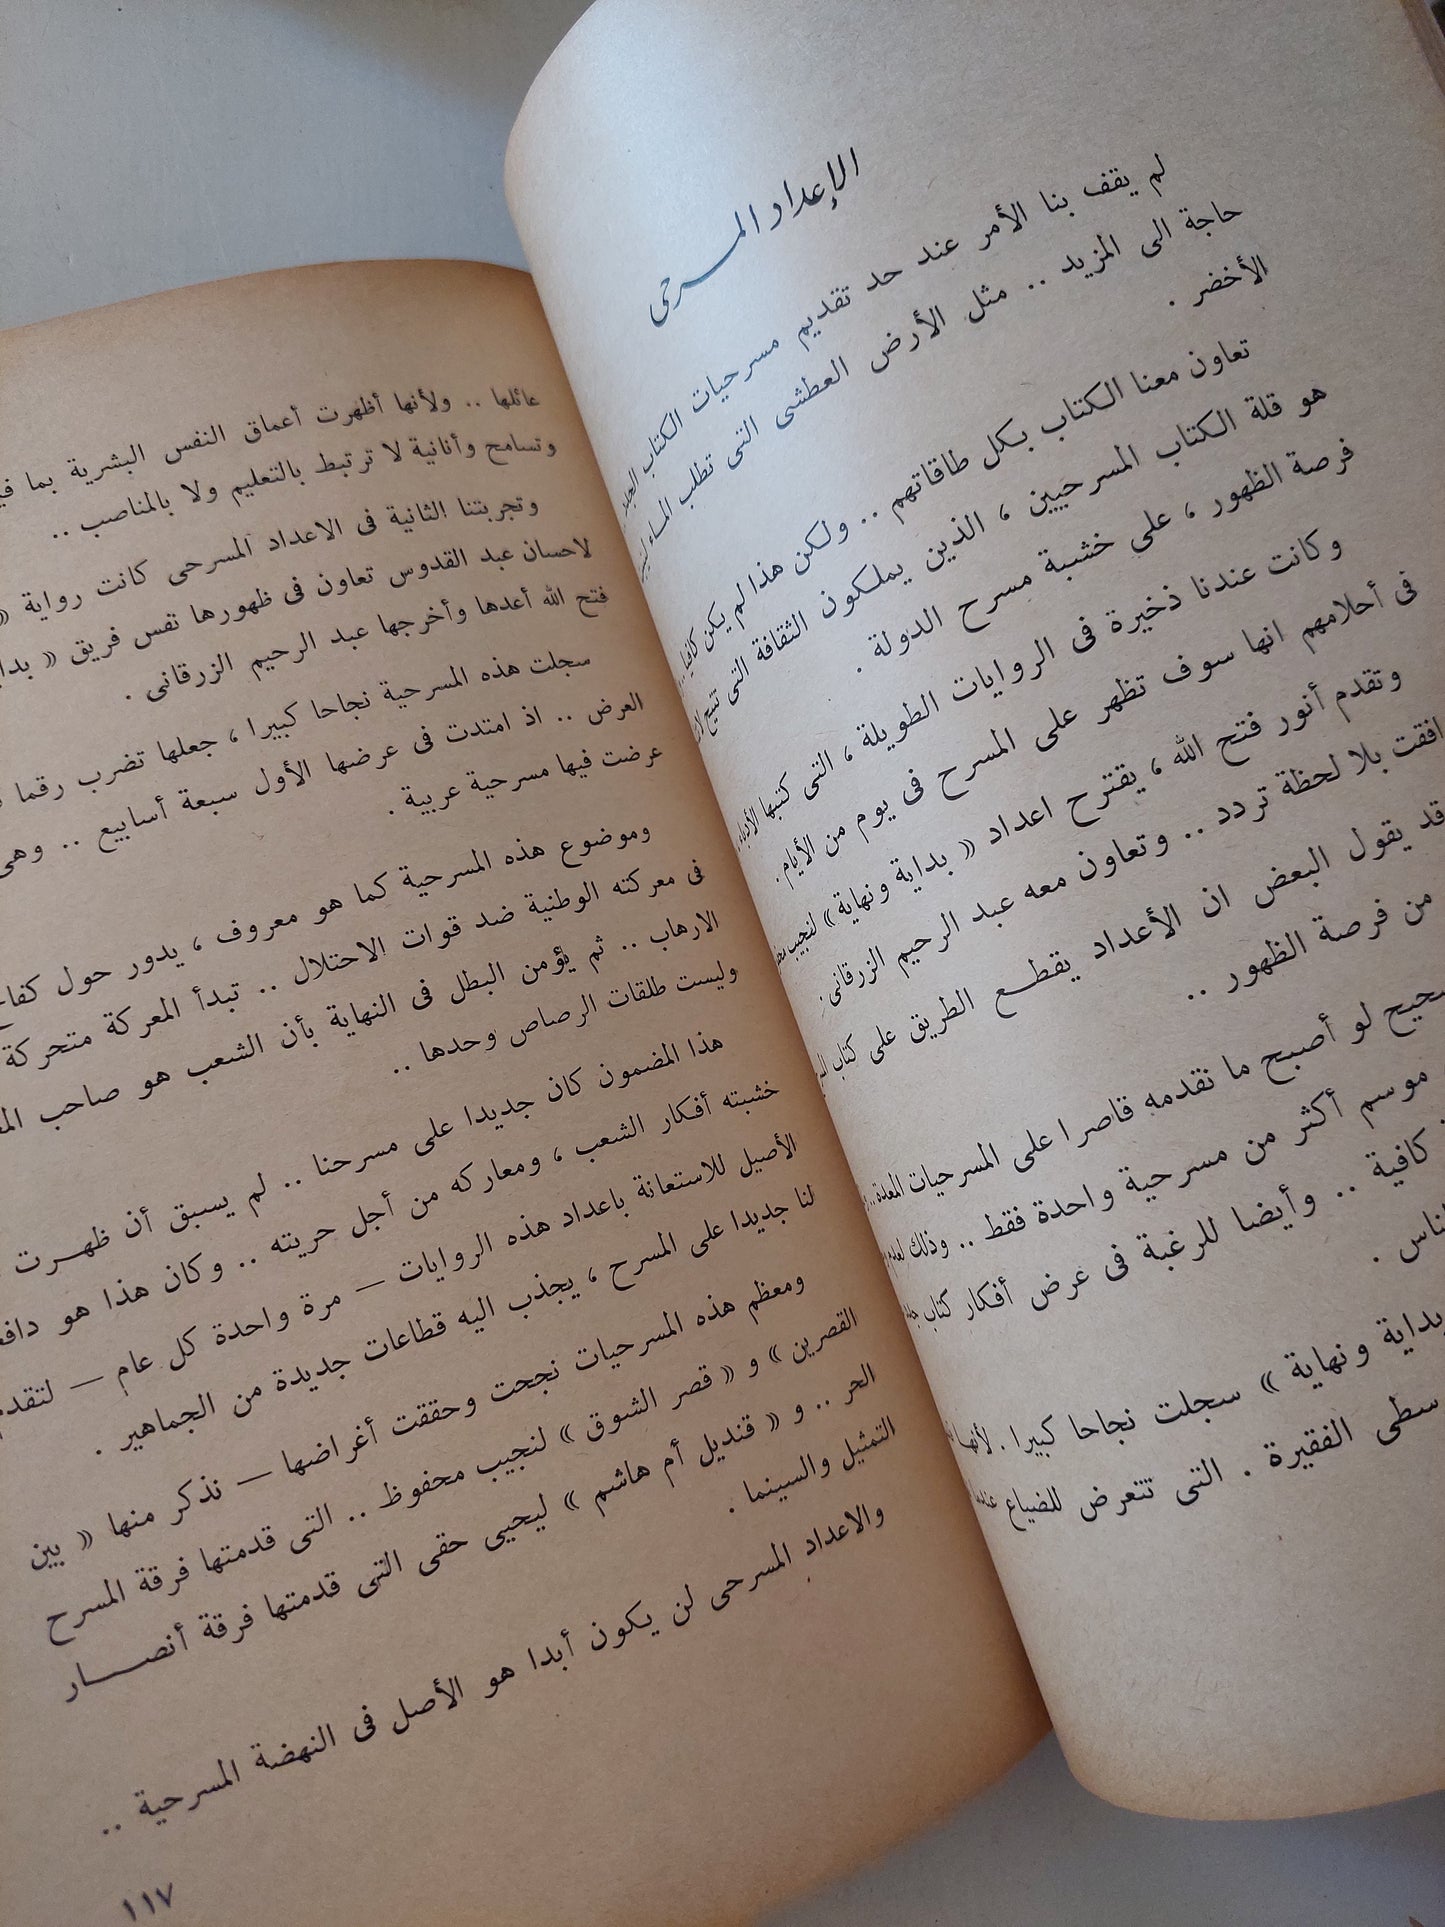 الإعداد المسرحى
لم يقف بنا الأمر عند حد تقديم مسرحيات الكتاب الجدد
حاجة الى المزيد .. مثل الأرض العطشى التى تطلب الماء
الأخضر .
تعاون معنا الكتاب بكل طاقاتهم .. ولكن هذا لم يكن كافيا ..
هو قلة الكتاب المسرحيين ، الذين يملكون الثقافة التى تتيح
فرصة الظهور ، على خشبة مسرح الدولة .
وكانت عندنا ذخيرة فى الروايات الطويلة ، التى كتبها الأدباء
فى أحلامهم انها سوف تظهر على المسرح فى يوم من الأيام .
وتقدم أنور فتح الله ، يقترح اعداد « بداية ونهاية » لنجيب
افقت بلا لحظة تردد .. وتعاون معه عبد الرحيم الزرقانى .
قد يقول البعض ان الأعداد يقطع الطريق على كتاب
من فرصة الظهور ..
لو أصبح ما نقدمه قاصرا على المسرحيات المعدة ..
موسم أكثر من مسرحية واحدة فقط .. وذلك لعدم
كافية .. وأيضا للرغبة فى عرض أفكار كتاب
الناس .
بداية ونهاية » سجلت نجاحا كبيرا . لأنها
الفقيرة . التى تتعرض للضياع
عائلها .. ولأنها أظهرت أعماق النفس البشرية بما
وتسامح وأنانية لا ترتبط بالتعليم ولا بالمناصب ..
وتجربتنا الثانية فى الاعداد المسرحى كانت رواية «
لاحسان عبد القدوس تعاون فى ظهورها نفس فريق « بداية
فتح الله أعدها وأخرجها عبد الرحيم الزرقانى .
سجلت هذه المسرحية نجاحا كبيرا ، جعلها تضرب رقما
العرض .. اذ امتدت فى عرضها الأول سبعة أسابيع .. وهى
عرضت فيها مسرحية عربية .
وموضوع هذه المسرحية كما هو معروف ، يدور حول كفاح
فى معركته الوطنية ضد قوات الاحتلال .. تبدأ المعركة متحركة
الارهاب .. ثم يؤمن البطل فى النهاية بأن الشعب هو صاحب
وليست طلقات الرصاص وحدها ..
هذا المضمون كان جديدا على مسرحنا .. لم يسبق أن ظهرت
خشبته أفكار الشعب ، ومعاركه من أجل حريته .. وكان هذا هو
الأصيل للاستعانة باعداد هذه الروايات — مرة واحدة كل عام — لتقدم
لنا جديدا على المسرح ، يجذب اليه قطاعات جديدة من الجماهير .
ومعظم هذه المسرحيات نجحت وحققت أغراضها — نذكر منها « بين
القصرين » و « قصر الشوق » لنجيب محفوظ .. التى قدمتها فرقة المسرح
الحر .. و « قنديل أم هاشم » ليحيى حقى التى قدمتها فرقة أنصار
التمثيل والسينما .
والاعداد المسرحى لن يكون أبدا هو الأصل فى النهضة المسرحية ..
١١٧